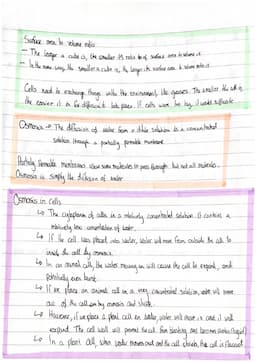 Surface area to volume ratio
↳ The larger a cube is, the smaller its ratio of surface area to volume is
↳ In the same way, the smaller a cube is, the larger its surface area to volume ratio is
Cells need to exchange things with the environment, like gasses. The smaller the cell is,
the easier it is for diffusion to take place. If cells were too big, it would suffocate
Osmosis → The diffusion of water from a dilute solution to a concentrated
solution through a partially permeable membrane
Partially permeable membranes allow some molecules to pass through but not all molecules.
Osmosis is simply the diffusion of water
Osmosis in Cells
↳ The cytoplasm of cells is a relatively concentrated solution. It contains a
relatively low concentration of water.
↳ If the cell was placed into water, water will move from outside the cell to
inside the cell by osmosis.
↳ In an animal cell, the water moving in will cause the cell to expand, and
potentially even burst.
↳ If we place an animal cell in a very concentrated solution, water will move
out of the cell by osmosis and shrink.
↳ However, if we place a plant cell in water, water will move in and it will
expand. The cell wall will prevent the cell from bursting and become
↳ In a plant cell, when water moves out and the cell shrinks, the cell is flaccid